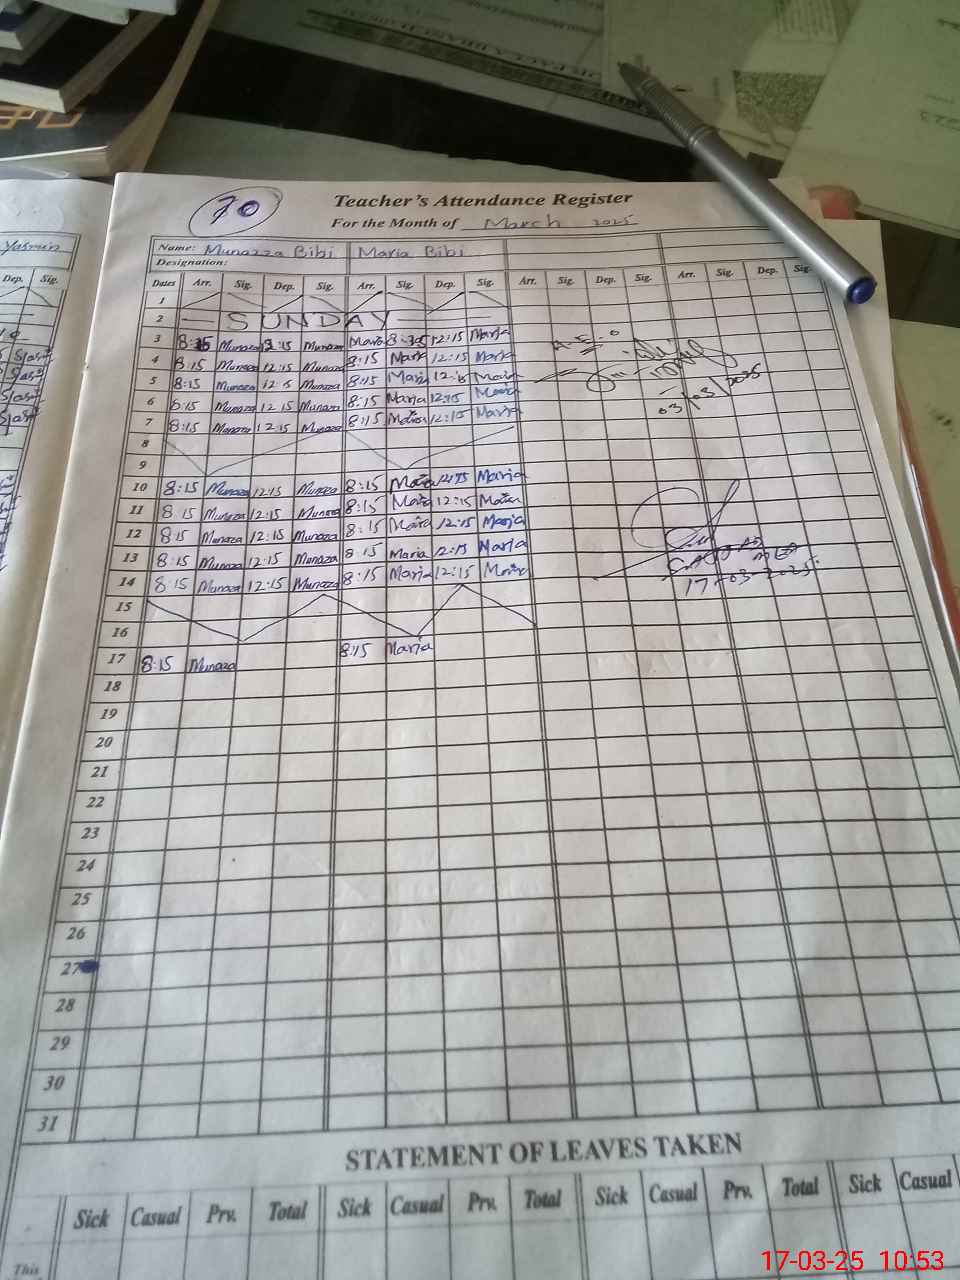 70
Teacher's Attendance Register
For the Month of March 2025
Yasmin
Name: Munazza Bibi Maria Bibi
Designation:
Dep. Sig.
Dates Arr. Sig. Dep. Sig. Arr. Sig. Dep. Sig. Arr. Sig. Dep. Sig. Arr. Sig. Dep. Sig.
1
2 SUNDAY
3 8:15 Munaza 12:15 Munaza Maria 12:15 Maria
4 8:15 Munaza 12:15 Munaza 8:15 Maria 12:15 Maria
5 8:15 Munaza 12:15 Munaza 8:15 Maria 12:15 Maria
6 8:15 Munaza 12:15 Munaza 8:15 Maria 12:15 Maria
7 8:15 Munaza 12:15 Munaza 8:15 Maria 12:15 Maria
03/03/2025
8
9
10 8:15 Munaza 12:15 Munaza 8:15 Maria 12:15 Maria
11 8:15 Munaza 12:15 Munaza 8:15 Maria 12:15 Maria
12 8:15 Munaza 12:15 Munaza 8:15 Maria 12:15 Maria
13 8:15 Munaza 12:15 Munaza 8:15 Maria 12:15 Maria
14 8:15 Munaza 12:15 Munaza 8:15 Maria 12:15 Maria
17-03-2025
15
16
17 8:15 Munaza 8:15 Maria
18
19
20
21
22
23
24
25
26
27
28
29
30
31
STATEMENT OF LEAVES TAKEN
Sick Casual Prv. Total Sick Casual Prv. Total Sick Casual Prv. Total Sick Casual
This
17-03-25 10:53